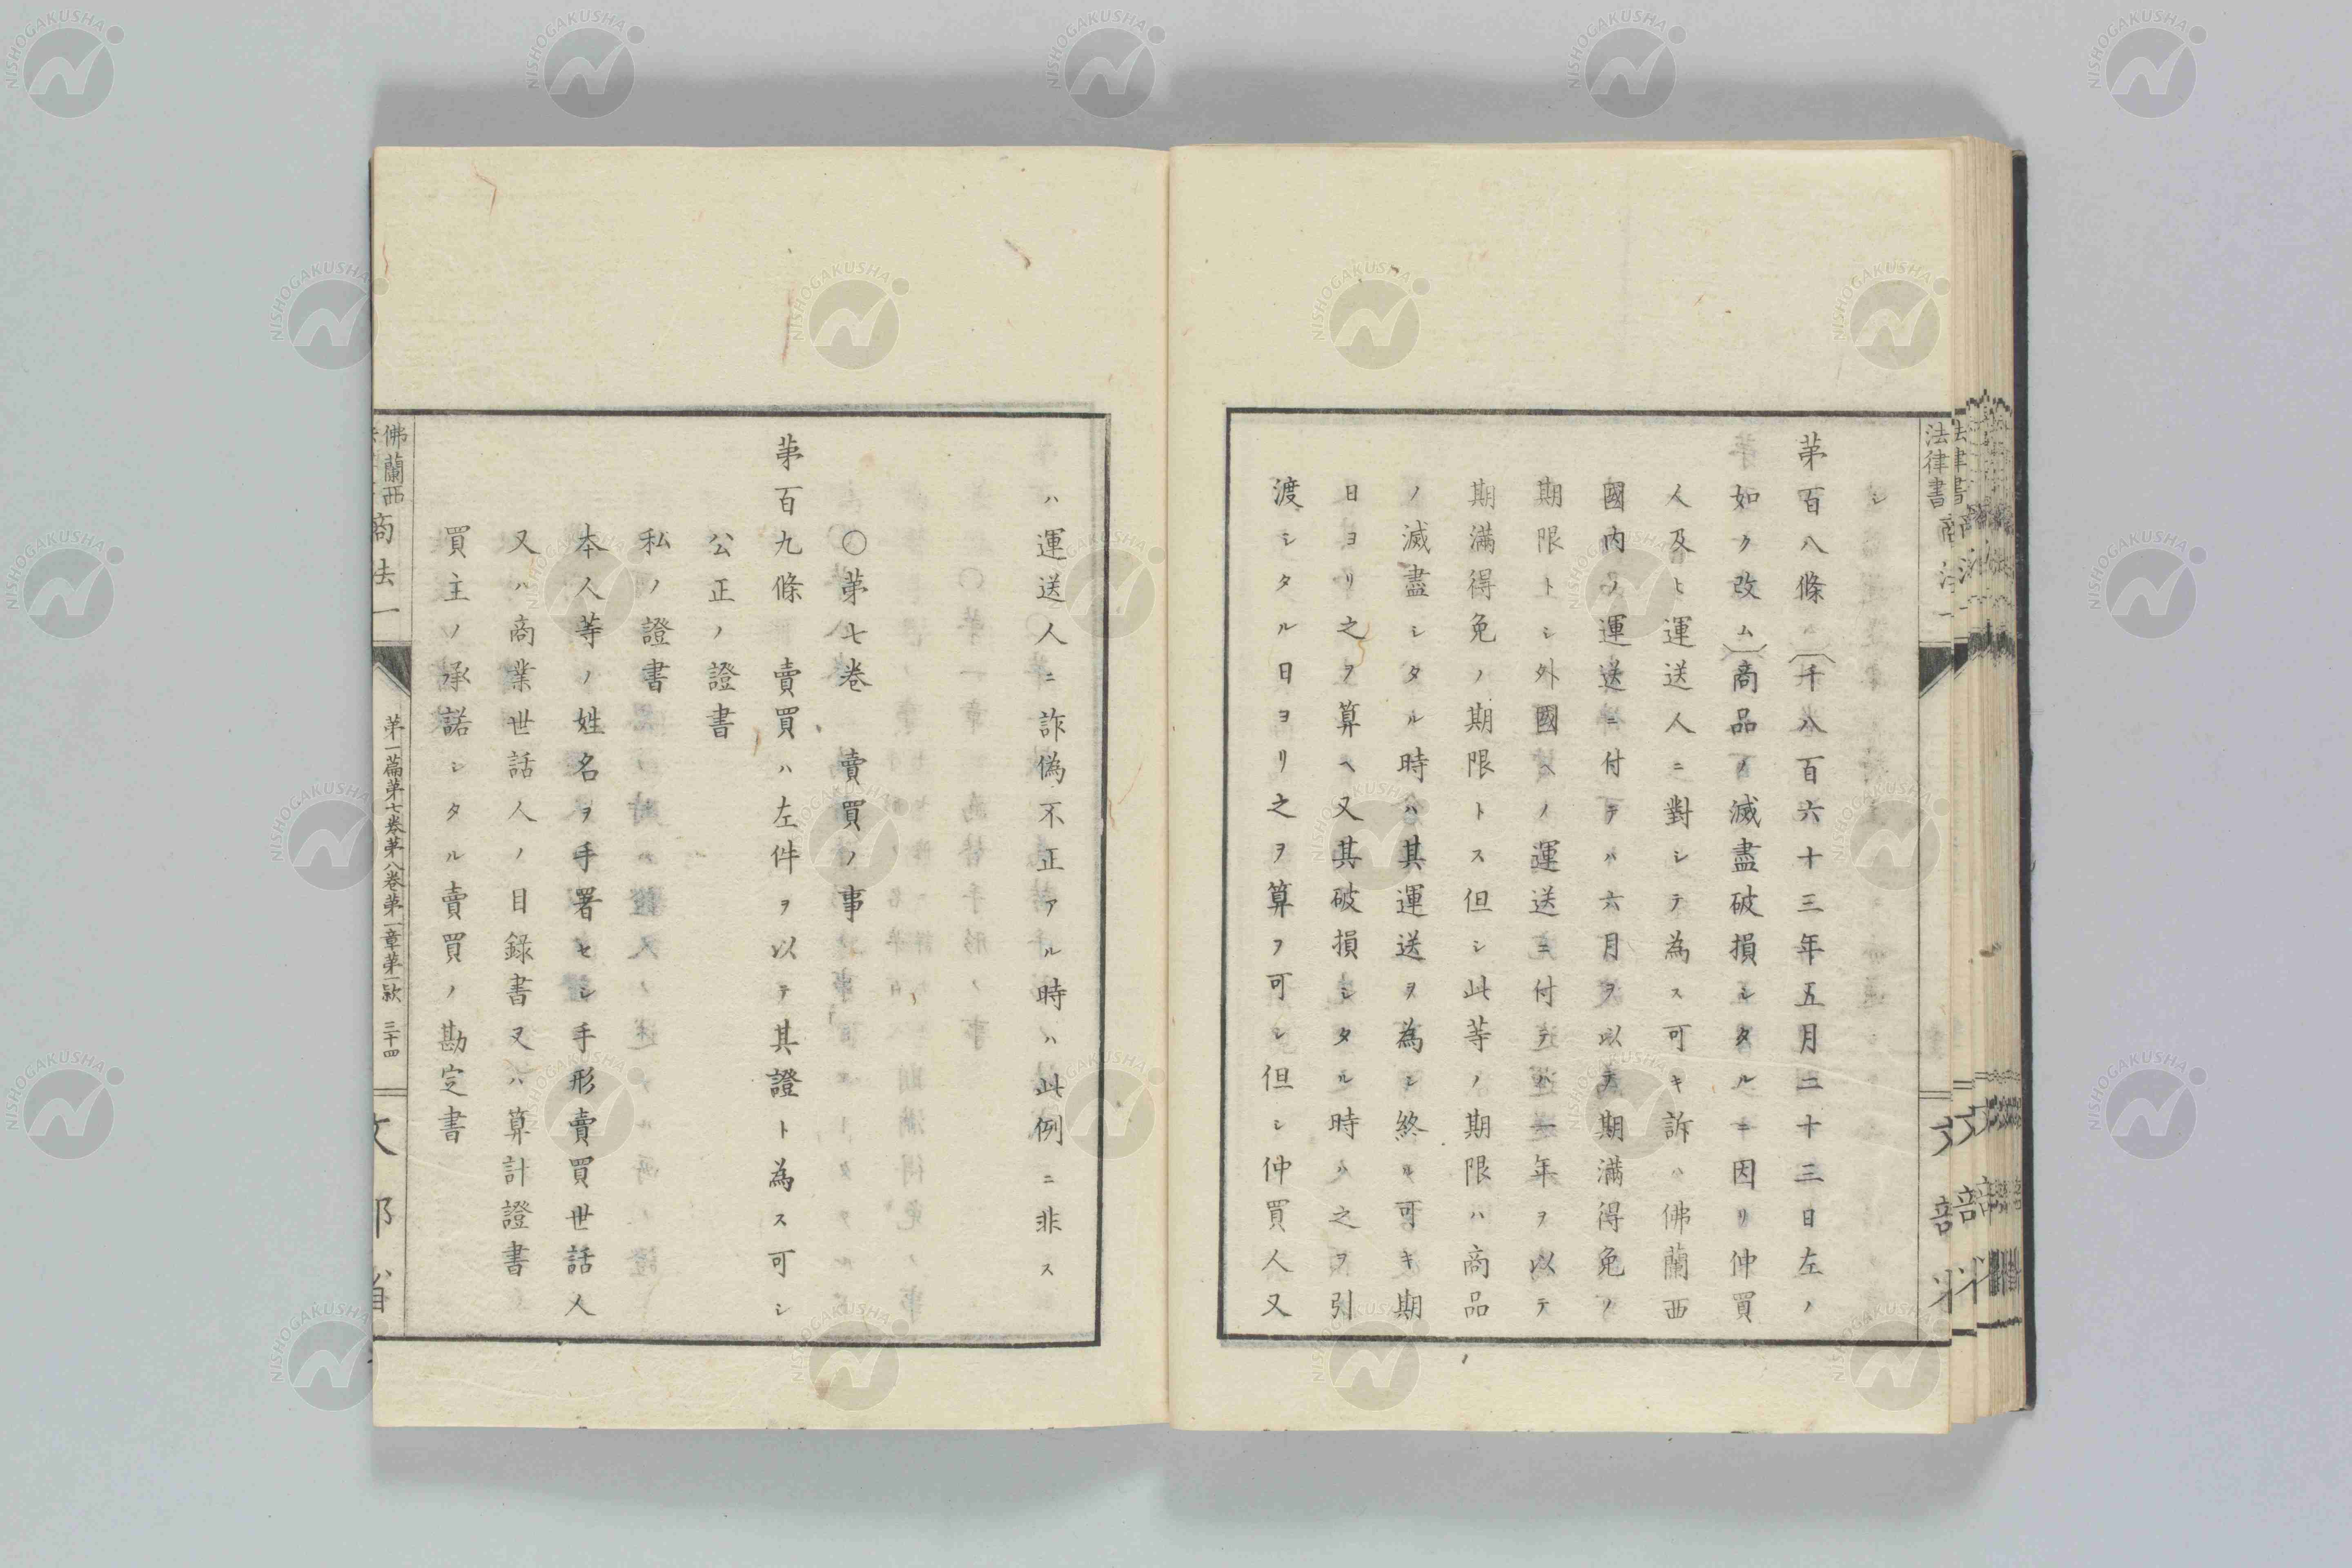 シ
苐百八條〔千八百六十三年五月二十三日左ノ
如ク改ム〕商品ノ滅盡破損シタルニ因リ仲買
人及ヒ運送人ニ對シテ為ス可キ訴ハ佛蘭西
國内ノ運送ニ付テハ六月ヲ以テ期滿得免ノ
期限トシ外國ヘノ運送ニ付テハ一年ヲ以テ
期滿得免ノ期限トス但シ此等ノ期限ハ商品
ノ滅盡シタル時ハ其運送ヲ為シ終ル可キ期
日ヨリ之ヲ算ヘ又其破損シタル時ハ之ヲ引
渡シタル日ヨリ之ヲ算フ可シ但シ仲買人又
ハ運送人ニ詐偽不正アル時ハ此例ニ非ス
〇苐七卷 賣買ノ事
苐百九條 賣買ハ左件ヲ以テ其證ト為ス可シ
公正ノ證書
私ノ證書
本人等ノ姓名ヲ手署セシ手形賣買世話人
又ハ商業世話人ノ目錄書又ハ算計證書
買主ノ承諾シタル賣買ノ勘定書
法律書
佛蘭西
商法一
苐一篇苐七卷苐八卷苐一章苐一款 三十四
文部省
NISHOGAKUSHA